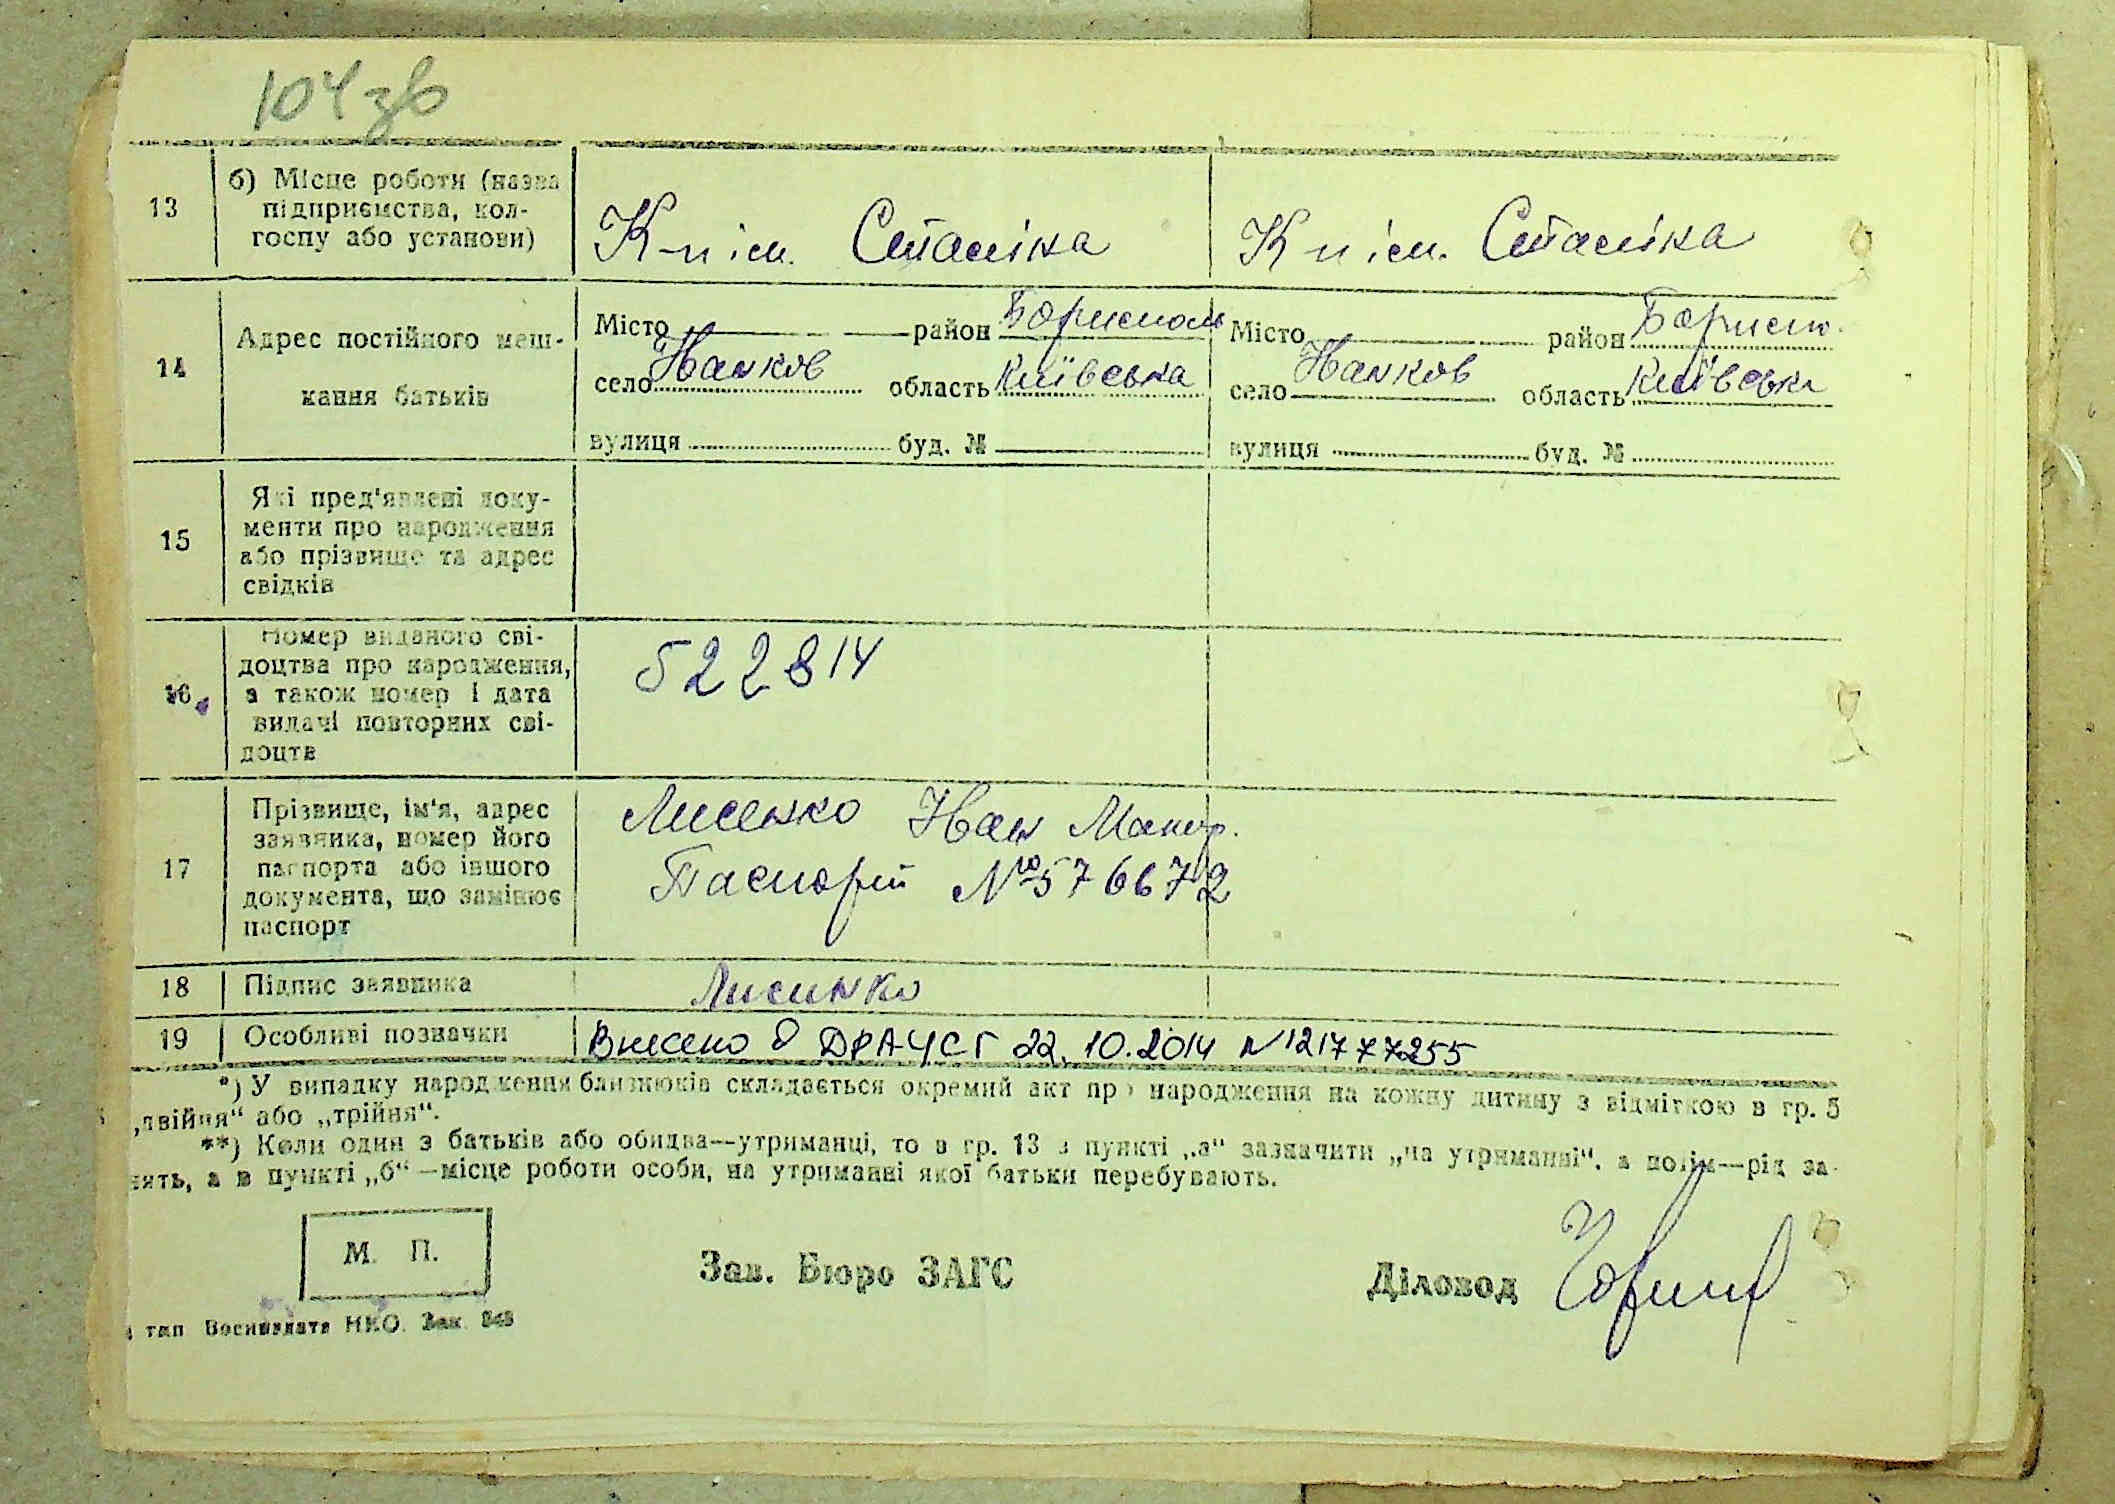 104 зв
13 б) Місце роботи (назва підприємства, колгоспу або установи)
К-п ім. Сталіна
К-п ім. Сталіна
14 Адрес постійного мешкання батьків
Місто район Бориспол
село Іванков область Київська
вулиця буд. №
Місто район Борисп.
село Іванков область Київська
вулиця буд. №
15 Які пред'явлені документи про народження або прізвище та адрес свідків
16 Номер виданого свідоцтва про народження, а також номер і дата видачі повторних свідоцтв
522814
17 Прізвище, ім'я, адрес заявника, номер його паспорта або іншого документа, що замінює паспорт
Лисенко Іван Макар.
Паспорт № 576672
18 Підпис заявника
Лисинко
19 Особливі позначки
Внесено в ДРАЦСГ 22.10.2014 N 121777255
*) У випадку народження близнюків складається окремий акт про народження на кожну дитину з відміткою в гр. 5
„двійня“ або „трійня“.
**) Коли один з батьків або обидва—утриманці, то в гр. 13 в пункті „а“ зазначити „на утриманні“, а потім—рід за-
нять, а в пункті „б“ —місце роботи особи, на утриманні якої батьки перебувають.
М. П.
Зав. Бюро ЗАГС
Діловод
тип Воениздата НКО. Зак. 343